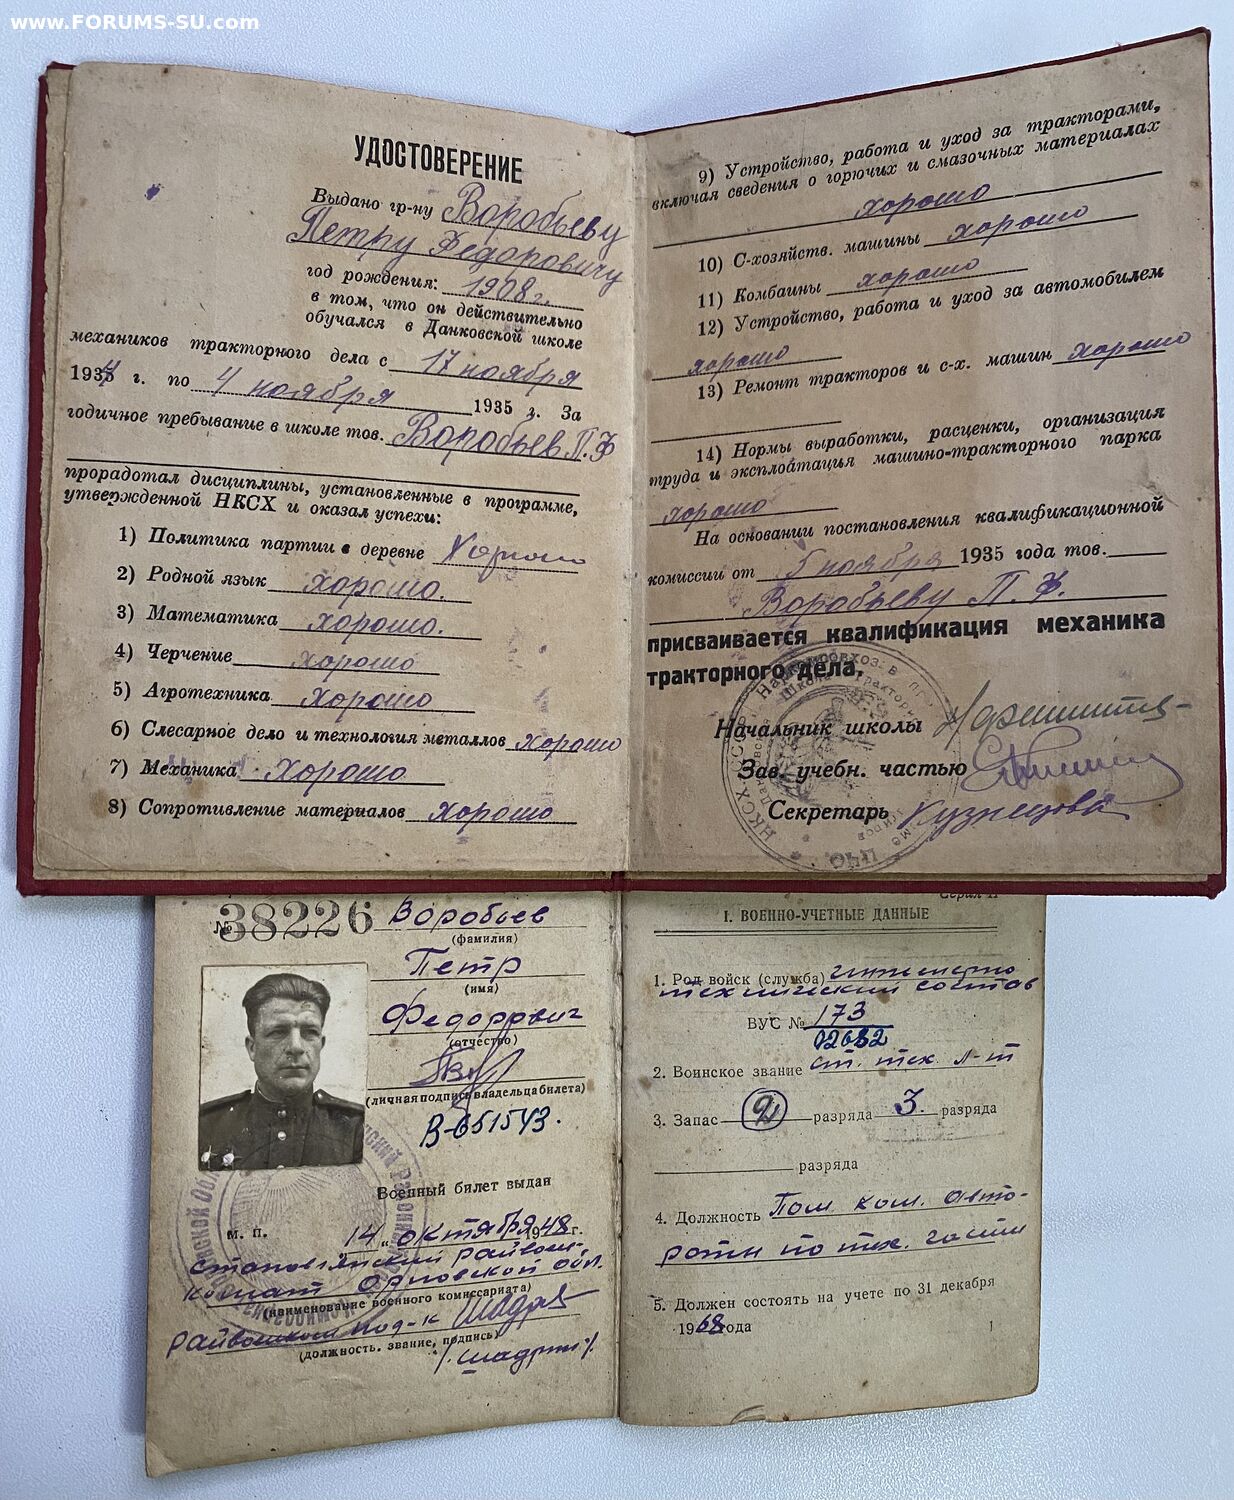 www.FORUMS-SU.com
УДОСТОВЕРЕНИЕ
Выдано гр-ну Воробьеву
Петру Федоровичу
год рождения: 1908 г.
в том, что он действительно
обучался в Данковской школе
механиков тракторного дела с 17 ноября
1934 г. по 4 ноября 1935 г. За
годичное пребывание в школе тов. Воробьев П. Ф
проработал дисциплины, установленные в программе,
утвержденной НКСХ и оказал успехи:
1) Политика партии в деревне Хорошо
2) Родной язык хорошо.
3) Математика хорошо.
4) Черчение хорошо
5) Агротехника хорошо
6) Слесарное дело и технология металлов хорошо
7) Механика хорошо
8) Сопротивление материалов хорошо
9) Устройство, работа и уход за тракторами,
включая сведения о горючих и смазочных материалах
хорошо
10) С-хозяйств. машины хорошо
11) Комбаины хорошо
12) Устройство, работа и уход за автомобилем
хорошо
13) Ремонт тракторов и с-х. машин хорошо
14) Нормы выработки, расценки, организация
труда и эксплоатация машино-тракторного парка
хорошо
На основании постановления квалификационной
комиссии от 5 ноября 1935 года тов.
Воробьеву П. Ф.
присваивается квалификация механика
тракторного дела.
Начальник школы
Зав. учебн. частью
Секретарь Кузнецова
№ 38226 Воробьев
(фамилия)
Петр
(имя)
Федорович
(отчество)
(личная подпись владельца билета)
В-651543.
Военный билет выдан
М. П. 14 „ октября 1948 г.
Становлянский райвоен-
комат Орловской обл.
(наименование военного комиссариата)
Райвоенком под-к
(должность, звание, подпись)
Серия П
I. ВОЕННО-УЧЕТНЫЕ ДАННЫЕ
1. Род войск (служба) инженерно
технический состав
ВУС № 173
02682
2. Воинское звание ст. тех. л-т
3. Запас 2 разряда 3. разряда
разряда
4. Должность Пом. ком. авто-
роты по тех. части
5. Должен состоять на учете по 31 декабря
1968 года
1